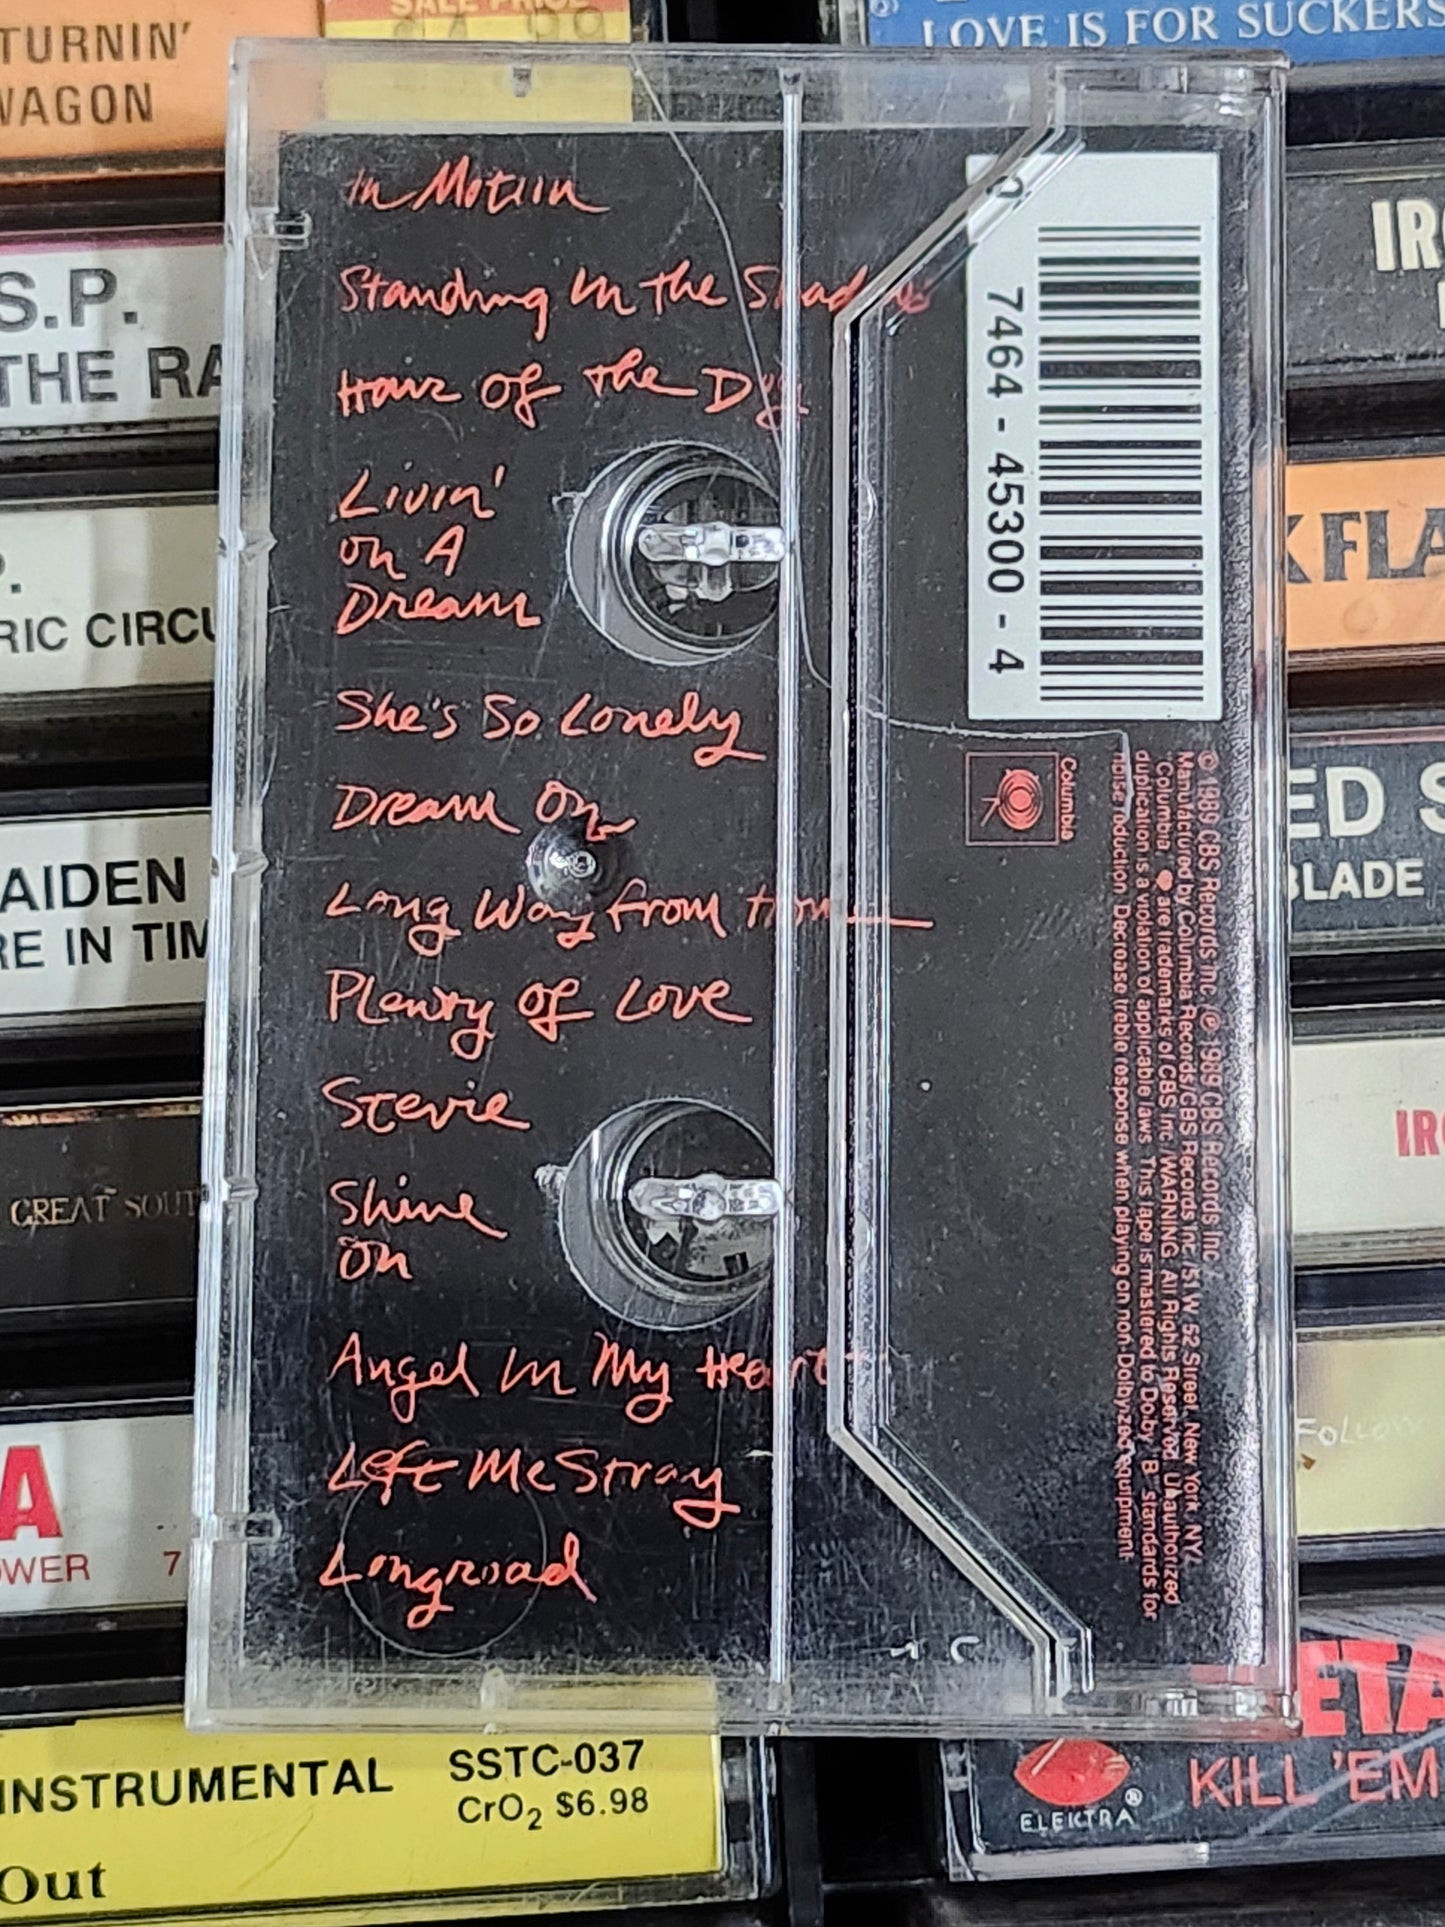 TURNIN'
WAGON
SALE PRICE
LOVE IS FOR SUCKERS
S.P.
THE RA
P.
RIC CIRCU
AIDEN
RE IN TIM
GREAT SOUT
A
OWER 7
In Motion
Standing In the Shadows
Hair of the Dog
Livin'
On A
Dream
She's So Lonely
Dream On
Long Way from Home
Plenty of Love
Stevie
Shine
On
Angel In My Heart
Left Me Stray
Longroad
7464-45300-4
Columbia
© 1989 CBS Records Inc./℗ 1989 CBS Records Inc./
Manufactured by Columbia Records/CBS Records Inc./51 W. 52 Street, New York, NY/
"Columbia," are trademarks of CBS Inc./WARNING: All Rights Reserved. Unauthorized
duplication is a violation of applicable laws. This tape is mastered to Dolby "B" standards for
noise reduction. Decrease treble response when playing on non-Dolbyized equipment.
IR
K FLA
ED S
BLADE
IR
Follow
ETA
KILL 'EM
ELEKTRA®
INSTRUMENTAL
SSTC-037
CrO2 $6.98
Out